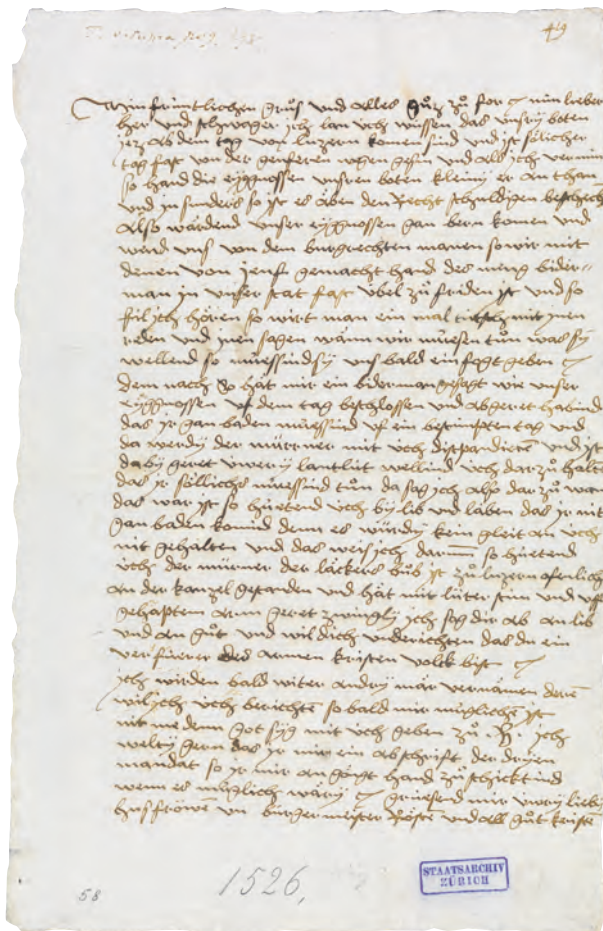 419
Min früntlichen grůs und alles gůtz zů for min lieber
her und schwager ich lan üch wüssen das unsry boten
jez ab dem tag von luzern komen sind und ist sölicher
tag fast von der genferen wägen gesin und als ich vernim
so hand die eyggnossen unsren boten kleiny er an than
und in sunders so ist es aben den Recht schuldigen beschech
Also wärdend unser eyggnossen gan bern komen und
wend uns von dem burgrechten manen so wir mit
denen von jenf gemacht hand des meng bider-
man in unser stat fast übel zů friden ist und so
fil ich hören so wirt man ein mal tütsch mit jnen
reden und jnen sagen wänn wir müesen tůn was sy
wellend so müessind sy uns bald ein fogt geben
dem nach so hät mir ein biderman gesagt wie unser
eyggnossen uf dem tag beschlossen und abgeret habind
das jr gan baden müessind uf ein bestimpten tag und
da werdy der murner mit üch disspandieren und ist
daby geret üwery lantlüt wellind üch dar zů halten
das jr sölliches müessind tůn da sag ich also dar zů wan
das war ist so hüetend üch by lib und läben das jr nit
gan baden komind denn es würdy kein gleit an üch
nit gehalten und das weis ich darum so hüetend
üch der murner der läckers bůb ist zů luzern ofenlich
an der kanzel gestanden und hät mit luter stim und uf
gehapten arm geret zwingly ich sag dir ab an lib
und an gůt und wil dich underichten das du ein
verfürer des armen kristen volck bist
ich wirden bald witer andry mär vernämen deren
wil ich üch berichten so bald mir müglichen ist
nit me denn got syg mit üch geben zů B. ich
welty gern das jr mir ein abschrift der dryen
mandat so jr mir an zöigt hand zů schicktind
wenn es müglich wäry grüesend mir üwry lieby
husfröwen un burgermeister Röist und all gůt kristen
58
1526,
STAATSARCHIV
ZÜRICH